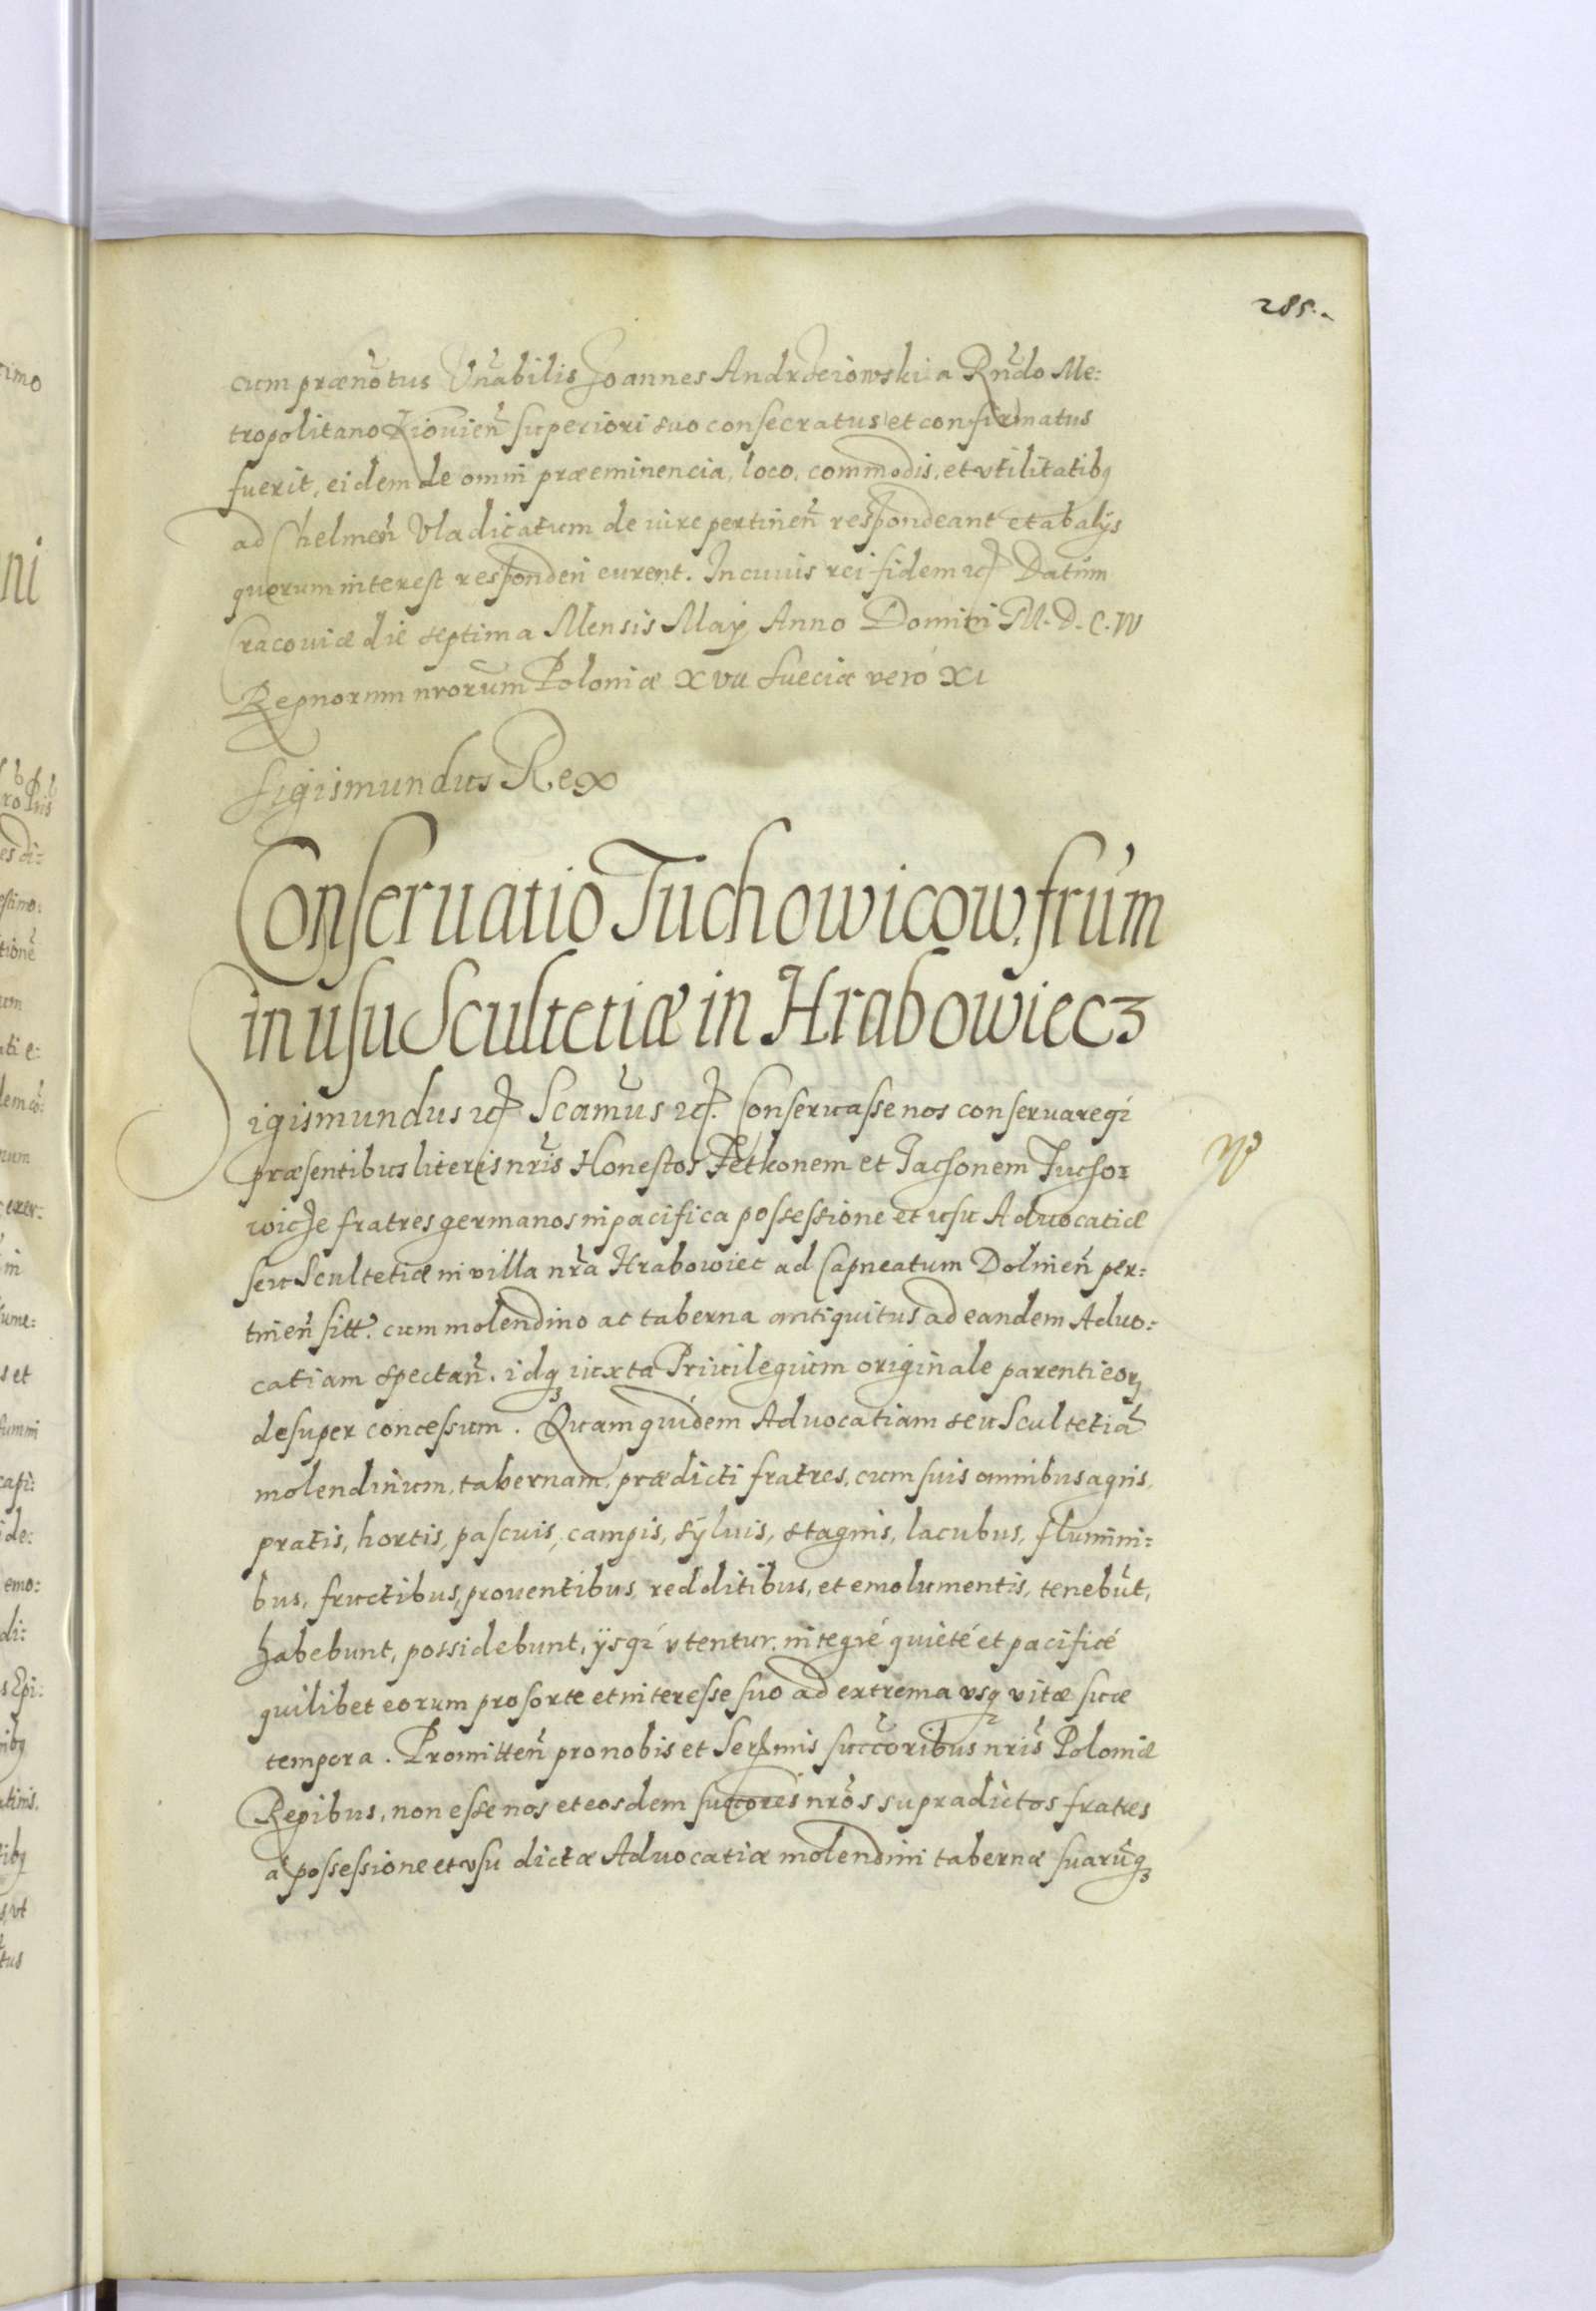 285.
cum prænotus Vnabilis Joannes Andrzeiowski a Rndo Me:
tropolitano Kiouien superiori suo consecratus et confirmatus
fuerit, eidem de omni præeminencia, loco, commodis, et vtilitatibq
ad Chelmen Vladicatum de iure pertinen respondeant et ab alijs
quorum interest responderi curent. In cuius rei fidem etc Datum
Cracouiæ die septima Mensis Maij Anno Domini M.D.C.IV
Regnorum nrorum Poloniæ XVII Sueciæ vero XI
Sigismundus Rex
Conseruatio Tuchowicow frum
in usu Scultetiæ in Hrabowiecz
Sigismundus etc Scamus etc. Conseruasse nos conseruareqz
præsentibus literis nris Honestos Fetkonem et Jachonem Tucho:
wicze fratres germanos in pacifica possessione et usu Aduocatiæ
seu Scultetiæ in villa nra Hrabowiec ad Capneatum Dolinen per:
tinen sitt. cum molendino ac taberna antiquitus ad eandem Aduo:
catiam spectan. idq iuxta Priuilegium originale parenti eorz
desuper concessum. Quam quidem Aduocatiam seu Scultetia
molendinum, tabernam, prædicti fratres, cum suis omnibus agris,
pratis, hortis, pascuis, campis, syluis, stagnis, lacubus, flumini:
bus, fructibus, prouentibus, redditibus, et emolumentis, tenebut,
habebunt, possidebunt, ijsqz vtentur, integre quiete et pacifice
quilibet eorum pro sorte et interesse suo ad extrema vsq vitæ suæ
tempora. Promitten pro nobis et Sermis succoribus nris Poloniæ
Regibus, non esse nos et eosdem succores nros supradictos fratres
a possessione et vsu dictæ Aduocatiæ molendini tabernæ suaruq